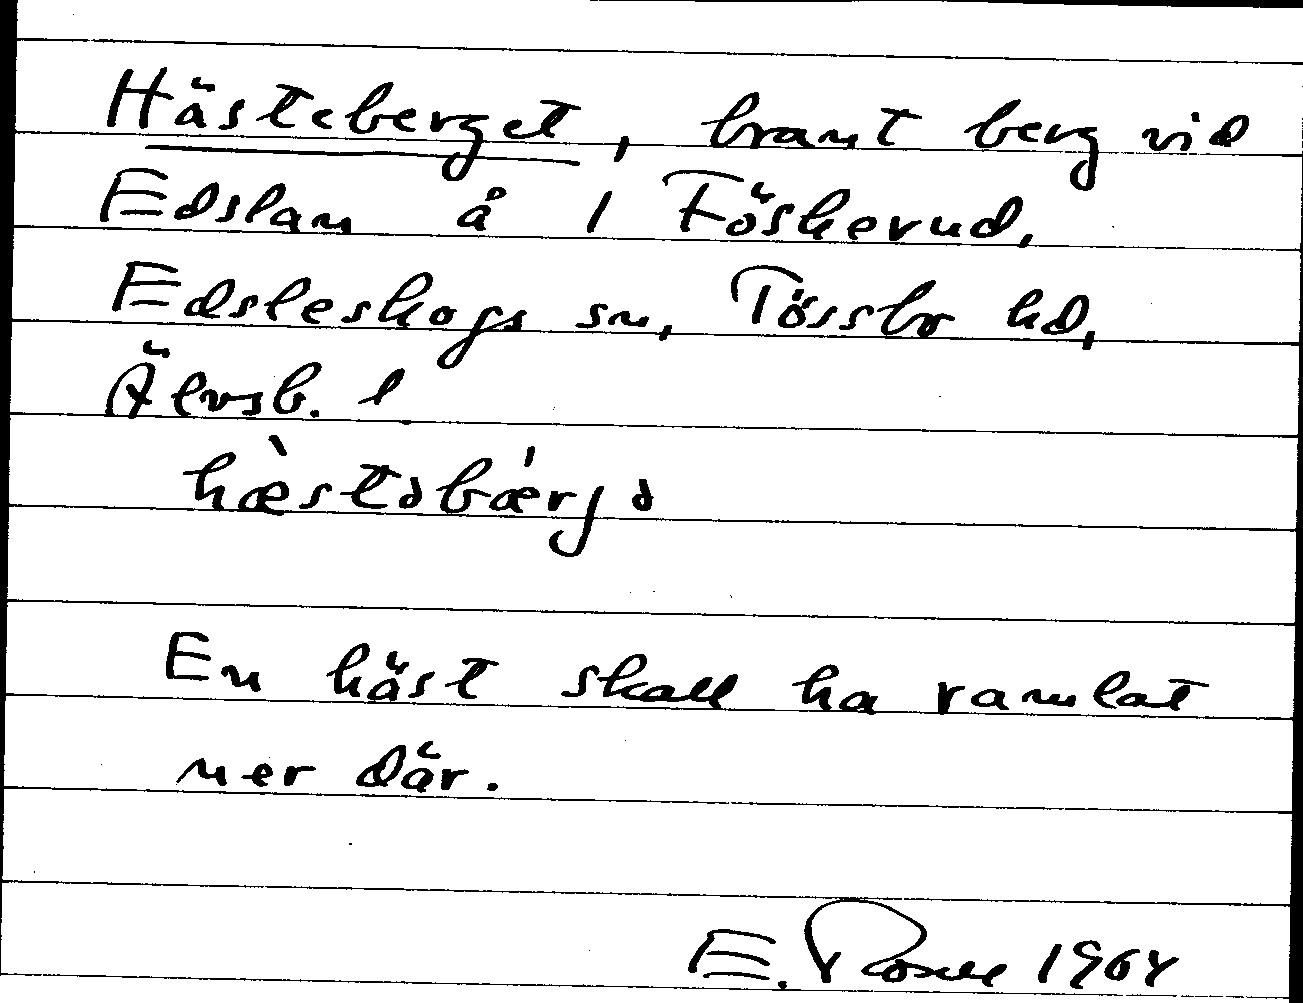 Hästeberget, brant berg vid
Edslan å i Föskerud,
Edsleskogs sn, Tössbo hd,
Älvsb. l
hæ̀stəbǽrjə
En häst skall ha ramlat
ner där.
E. 1964